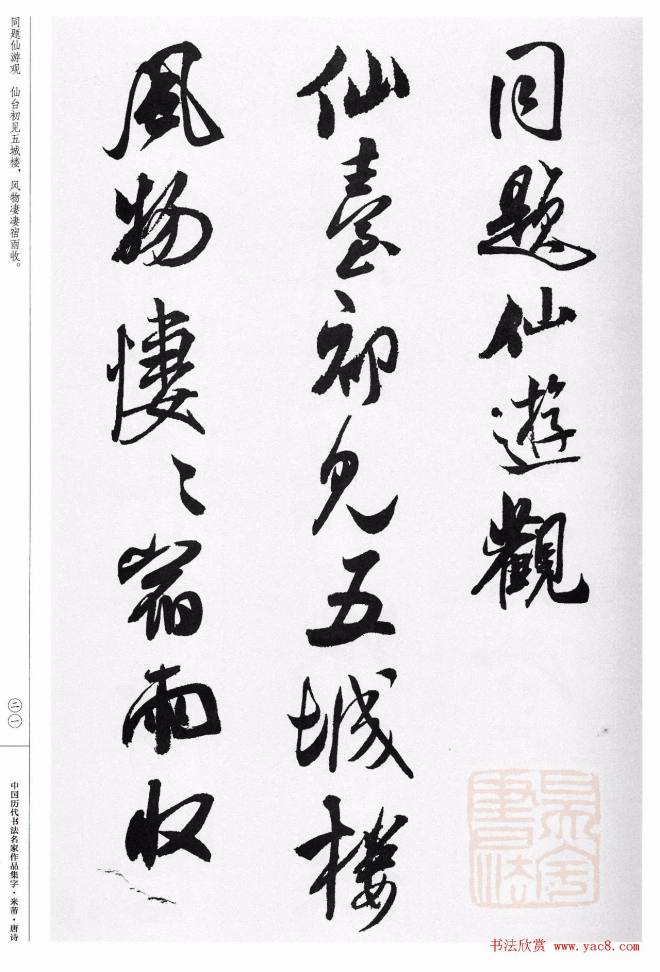 同题仙遊觀
仙臺初见五城楼
風物悽〻宿雨收
同题仙游观　仙台初见五城楼，风物凄凄宿雨收。
二一
中国历代书法名家作品集字·米芾·唐诗
书法欣赏 www.yac8.com